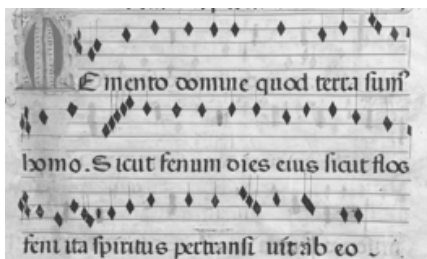 Memento domine quod terra sum⁹
homo. Sicut fenum dies eius sicut flos
feni ita spiritus pertransi uit ab eo